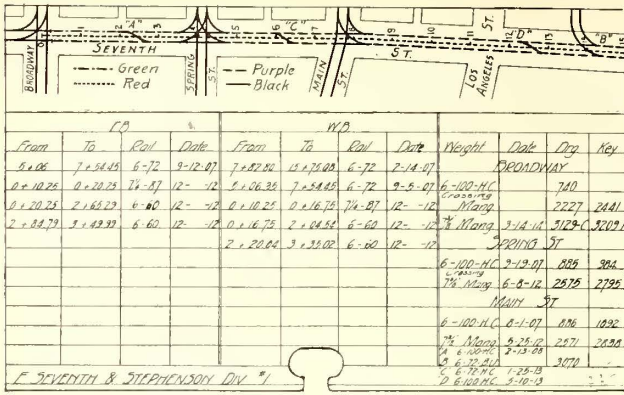 "A" "C" "D" "B"
1 2 3 5 6 7 9 10 11 12 13
BROADWAY SEVENTH SPRING ST. MAIN ST. ST. LOS ANGELES ST.
Green Purple
Red Black
EB WB
From To Rail Date From To Rail Date Weight Date Drg Key
5+06 7+54.45 6-72 9-12-07 7+82.80 15+75.08 6-72 2-14-07 BROADWAY
0+10.25 0+20.25 7⅜-87 12- -12 5+06.35 7+54.45 6-72 9-5-07 6-100-H.C. 740
Crossing
0+20.25 2+65.29 6-60 12- -12 0+10.25 0+16.75 7⅜-87 12- -12 Mang 2227 2441
2+84.79 3+49.99 6-60 12- -12 0+16.75 2+04.54 6-60 12- -12 Mang 3-14-12 3129-C
2+20.04 3+35.02 6-60 12- -12 SPRING ST
6-100-H.C. 9-19-07 885 984
Crossing
Mang 6-8-12 2575 2795
MAIN ST
6-100-H.C. 8-1-07 886 1892
Mang 5-25-12 2571 2838
A 6-100HC 2-13-08
B 6-72 3070
C 6-72 H.C 1-25-13
D 6-100 HC 5-10-13
E SEVENTH & STEPHENSON DIV #1